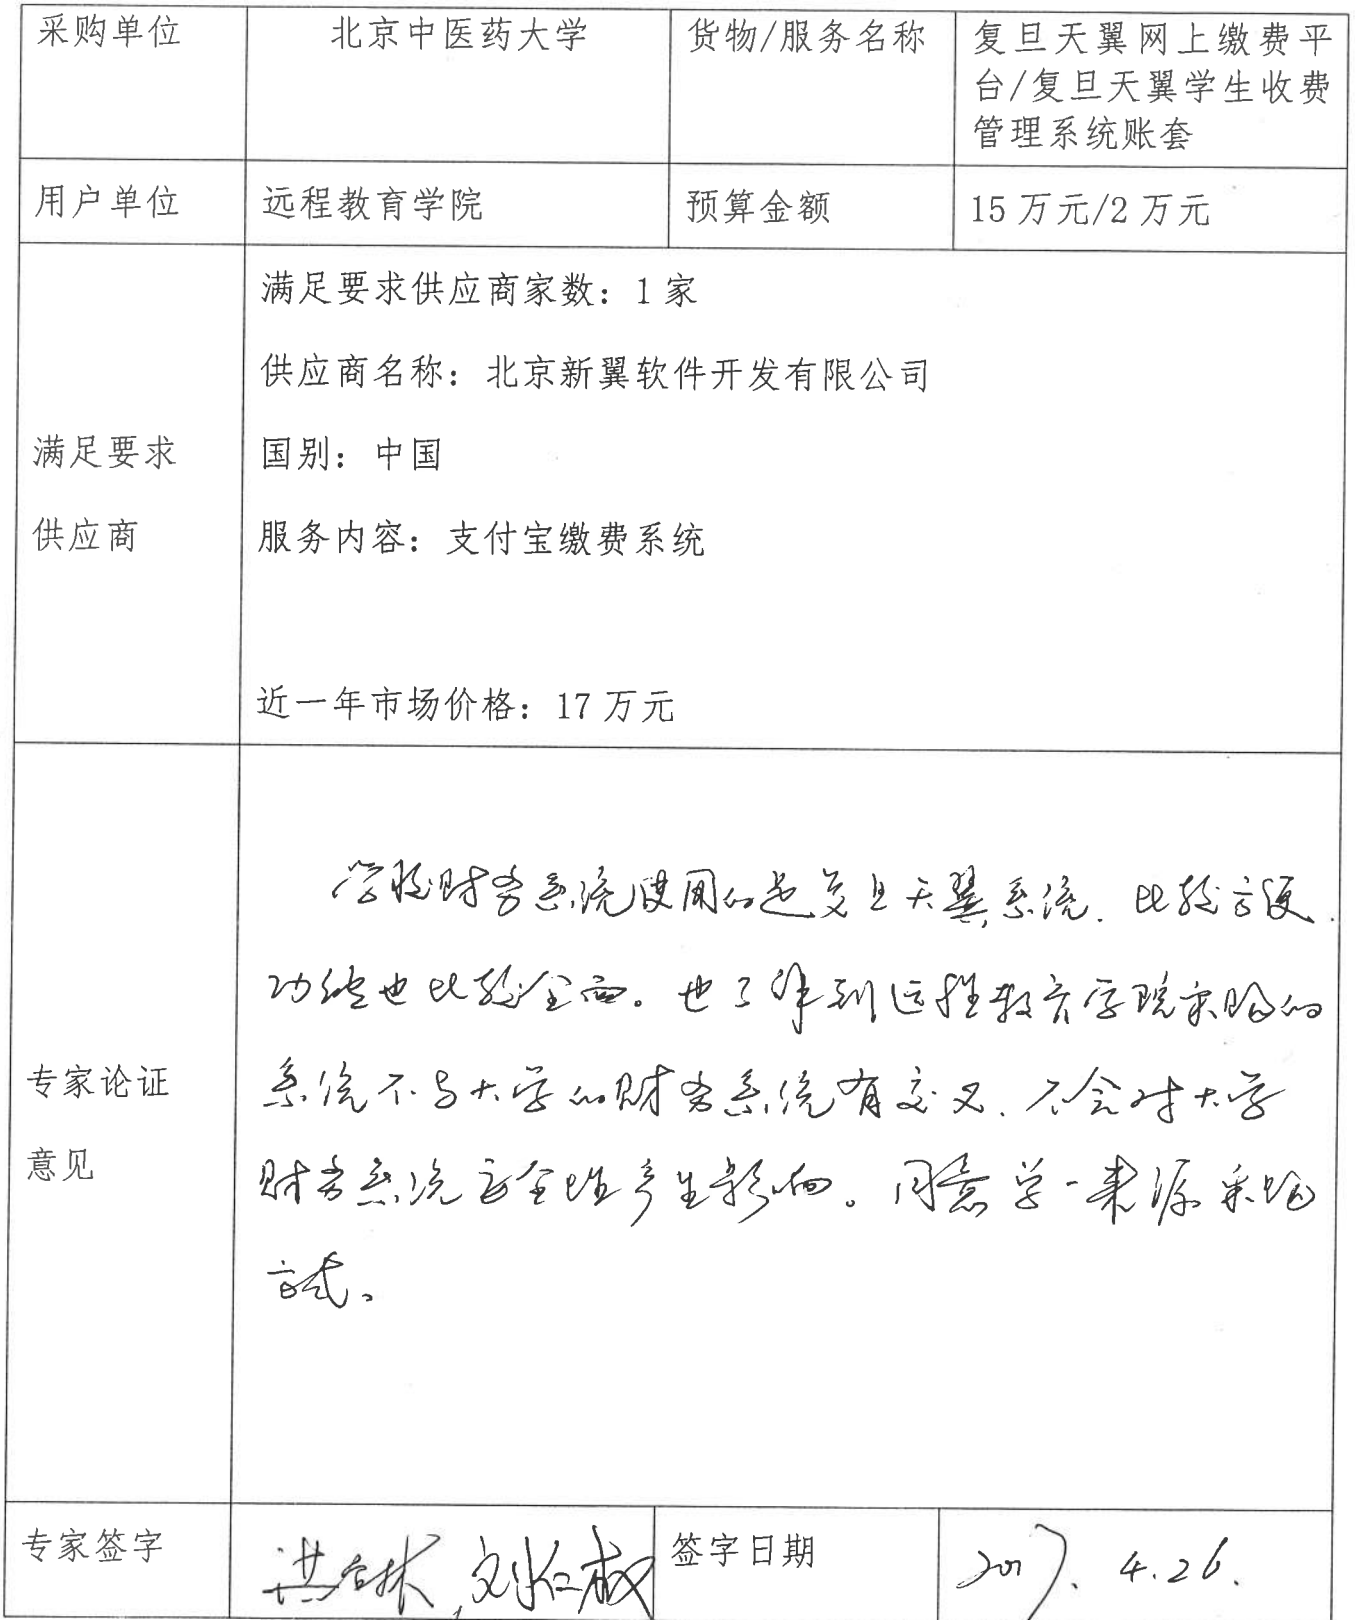 采购单位
北京中医药大学
货物/服务名称
复旦天翼网上缴费平
台/复旦天翼学生收费
管理系统账套
用户单位
远程教育学院
预算金额
15万元/2万元
满足要求
供应商
满足要求供应商家数：1家
供应商名称：北京新翼软件开发有限公司
国别：中国
服务内容：支付宝缴费系统
近一年市场价格：17万元
专家论证
意见
学校财务系统使用的是复旦天翼系统，比较方便，
功能也比较全面。也了解到远程教育学院采购的
系统不与大学的财务系统有交叉，不会对大学
财务系统安全性产生影响。同意单一来源采购
方式。
专家签字
签字日期
2017.4.26.